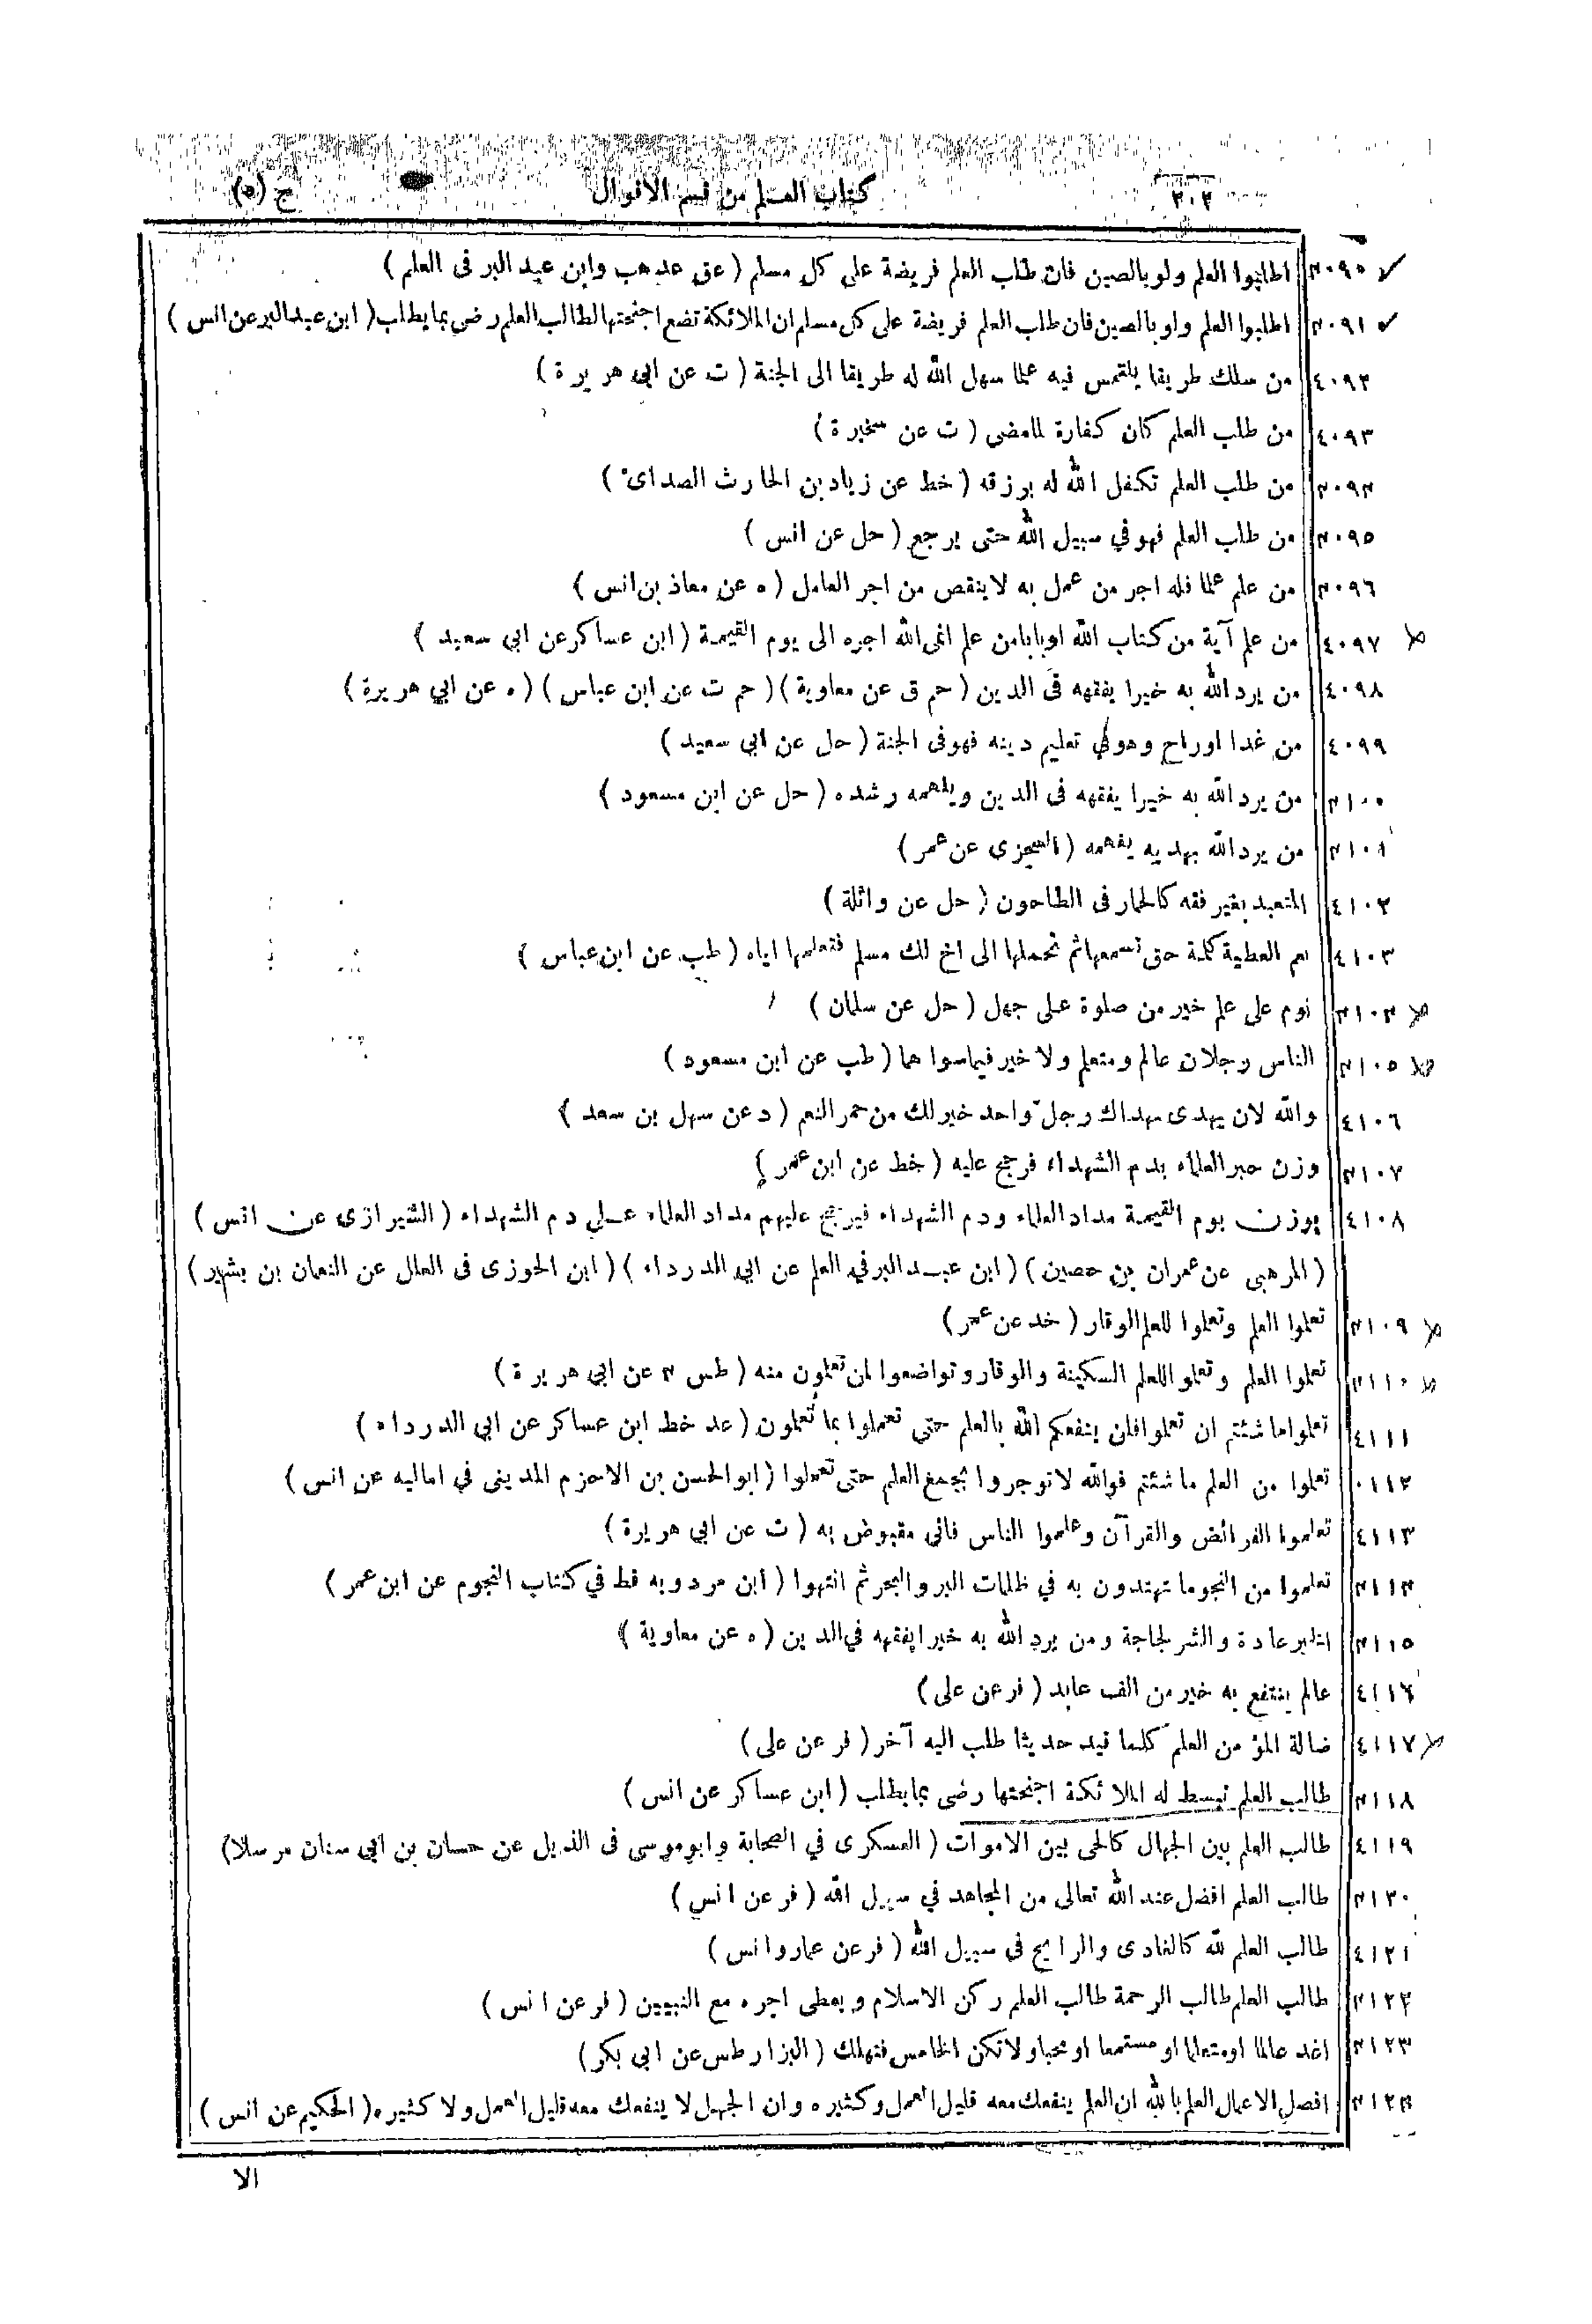 ٢٠٢ كتاب العلم من قسم الاقوال ج (٥)
٤٠٩٠ اطلبوا العلم ولو بالصين فان طلب العلم فريضة على كل مسلم ( عق عد هب وابن عبد البر فى العلم )
٤٠٩١ اطلبوا العلم ولو بالصين فان طلب العلم فريضة على كل مسلم ان الملائكة تضع اجنحتها لطالب العلم رضى بما يطلب ( ابن عبد البر عن انس )
٤٠٩٢ من سلك طريقا يلتمس فيه علما سهل الله له طريقا الى الجنة ( ت عن ابى هريرة )
٤٠٩٣ من طلب العلم كان كفارة لما مضى ( ت عن سخبرة )
٤٠٩٤ من طلب العلم تكفل الله له برزقه ( خط عن زياد بن الحارث الصدائى )
٤٠٩٥ من طلب العلم فهو في سبيل الله حتى يرجع ( حل عن انس )
٤٠٩٦ من علم علما فله اجر من عمل به لا ينقص من اجر العامل ( ه عن معاذ بن انس )
٤٠٩٧ من علم آية من كتاب الله او بابا من علم انمى الله اجره الى يوم القيمة ( ابن عساكر عن ابي سعيد )
٤٠٩٨ من يرد الله به خيرا يفقهه فى الدين ( حم ق عن معاوية ) ( حم ت عن ابن عباس ) ( ه عن ابي هريرة )
٤٠٩٩ من غدا او راح وهو في تعليم دينه فهو فى الجنة ( حل عن ابى سعيد )
٤١٠٠ من يرد الله به خيرا يفقهه فى الدين ويلهمه رشده ( حل عن ابن مسعود )
٤١٠١ من يرد الله بهديه يفهمه ( السجزى عن عمر )
٤١٠٢ المتعبد بغير فقه كالحمار فى الطاحون ( حل عن واثلة )
٤١٠٣ نعم العطية كلمة حق تسمعها ثم تحملها الى اخ لك مسلم فتعلمها اياه ( طب عن ابن عباس )
٤١٠٤ نوم على علم خير من صلوة على جهل ( حل عن سلمان )
٤١٠٥ الناس رجلان عالم ومتعلم ولا خير فيما سوا هما ( طب عن ابن مسعود )
٤١٠٦ والله لان يهدى بهداك رجل واحد خير لك من حمر النعم ( د عن سهل بن سعد )
٤١٠٧ وزن حبر العلماء بدم الشهداء فرجح عليه ( خط عن ابن عمر )
٤١٠٨ يوزن يوم القيمة مداد العلماء ودم الشهداء فيرجح عليهم مداد العلماء على دم الشهداء ( الشيرازى عن انس )
( المرهبى عن عمران بن حصين ) ( ابن عبد البر في العلم عن ابي الدرداء ) ( ابن الجوزى فى العلل عن النعمان بن بشير )
٤١٠٩ تعلموا العلم وتعلموا للعلم الوقار ( خد عن عمر )
٤١١٠ تعلموا العلم وتعلموا للعلم السكينة والوقار وتواضعوا لمن تعلمون منه ( طس ٤ عن ابي هريرة )
٤١١١ تعلموا ما شئتم ان تعلموا فلن ينفعكم الله بالعلم حتى تعملوا بما تعلمون ( عد خط ابن عساكر عن ابي الدرداء )
٤١١٢ تعلموا من العلم ما شئتم فوالله لا توجروا بجمع العلم حتى تعملوا ( ابو الحسن بن الاخرم المدينى في اماليه عن انس )
٤١١٣ تعلموا الفرائض والقرآن وعلموا الناس فانى مقبوض به ( ت عن ابي هريرة )
٤١١٤ تعلموا من النجوم ما تهتدون به في ظلمات البر والبحر ثم انتهوا ( ابن مردويه قط في كتاب النجوم عن ابن عمر )
٤١١٥ الخير عادة والشر لجاجة ومن يرد الله به خيرا يفقهه في الدين ( ه عن معاوية )
٤١١٦ عالم ينتفع به خير من الف عابد ( فر عن على )
٤١١٧ ضالة المؤمن العلم كلما قيد حديثا طلب اليه آخر ( فر عن على )
٤١١٨ طالب العلم تبسط له الملائكة اجنحتها رضى بما يطلب ( ابن عساكر عن انس )
٤١١٩ طالب العلم بين الجهال كالحى بين الاموات ( العسكرى في الصحابة وابو موسى فى الذيل عن حسان بن ابي سنان مرسلا )
٤١٢٠ طالب العلم افضل عند الله تعالى من المجاهد في سبيل الله ( فر عن انس )
٤١٢١ طالب العلم لله كالغادى والرايح فى سبيل الله ( فر عن عمار وانس )
٤١٢٢ طالب العلم طالب الرحمة طالب العلم ركن الاسلام ويعطى اجره مع النبيين ( فر عن انس )
٤١٢٣ اغد عالما او متعلما او مستمعا او محبا ولا تكن الخامس فتهلك ( البزار طس عن ابى بكر )
٤١٢٤ افضل الاعمال العلم بالله ان العلم ينفعك معه قليل العمل وكثيره وان الجهل لا ينفعك معه قليل العمل ولا كثيره ( الحكيم عن انس )
الا